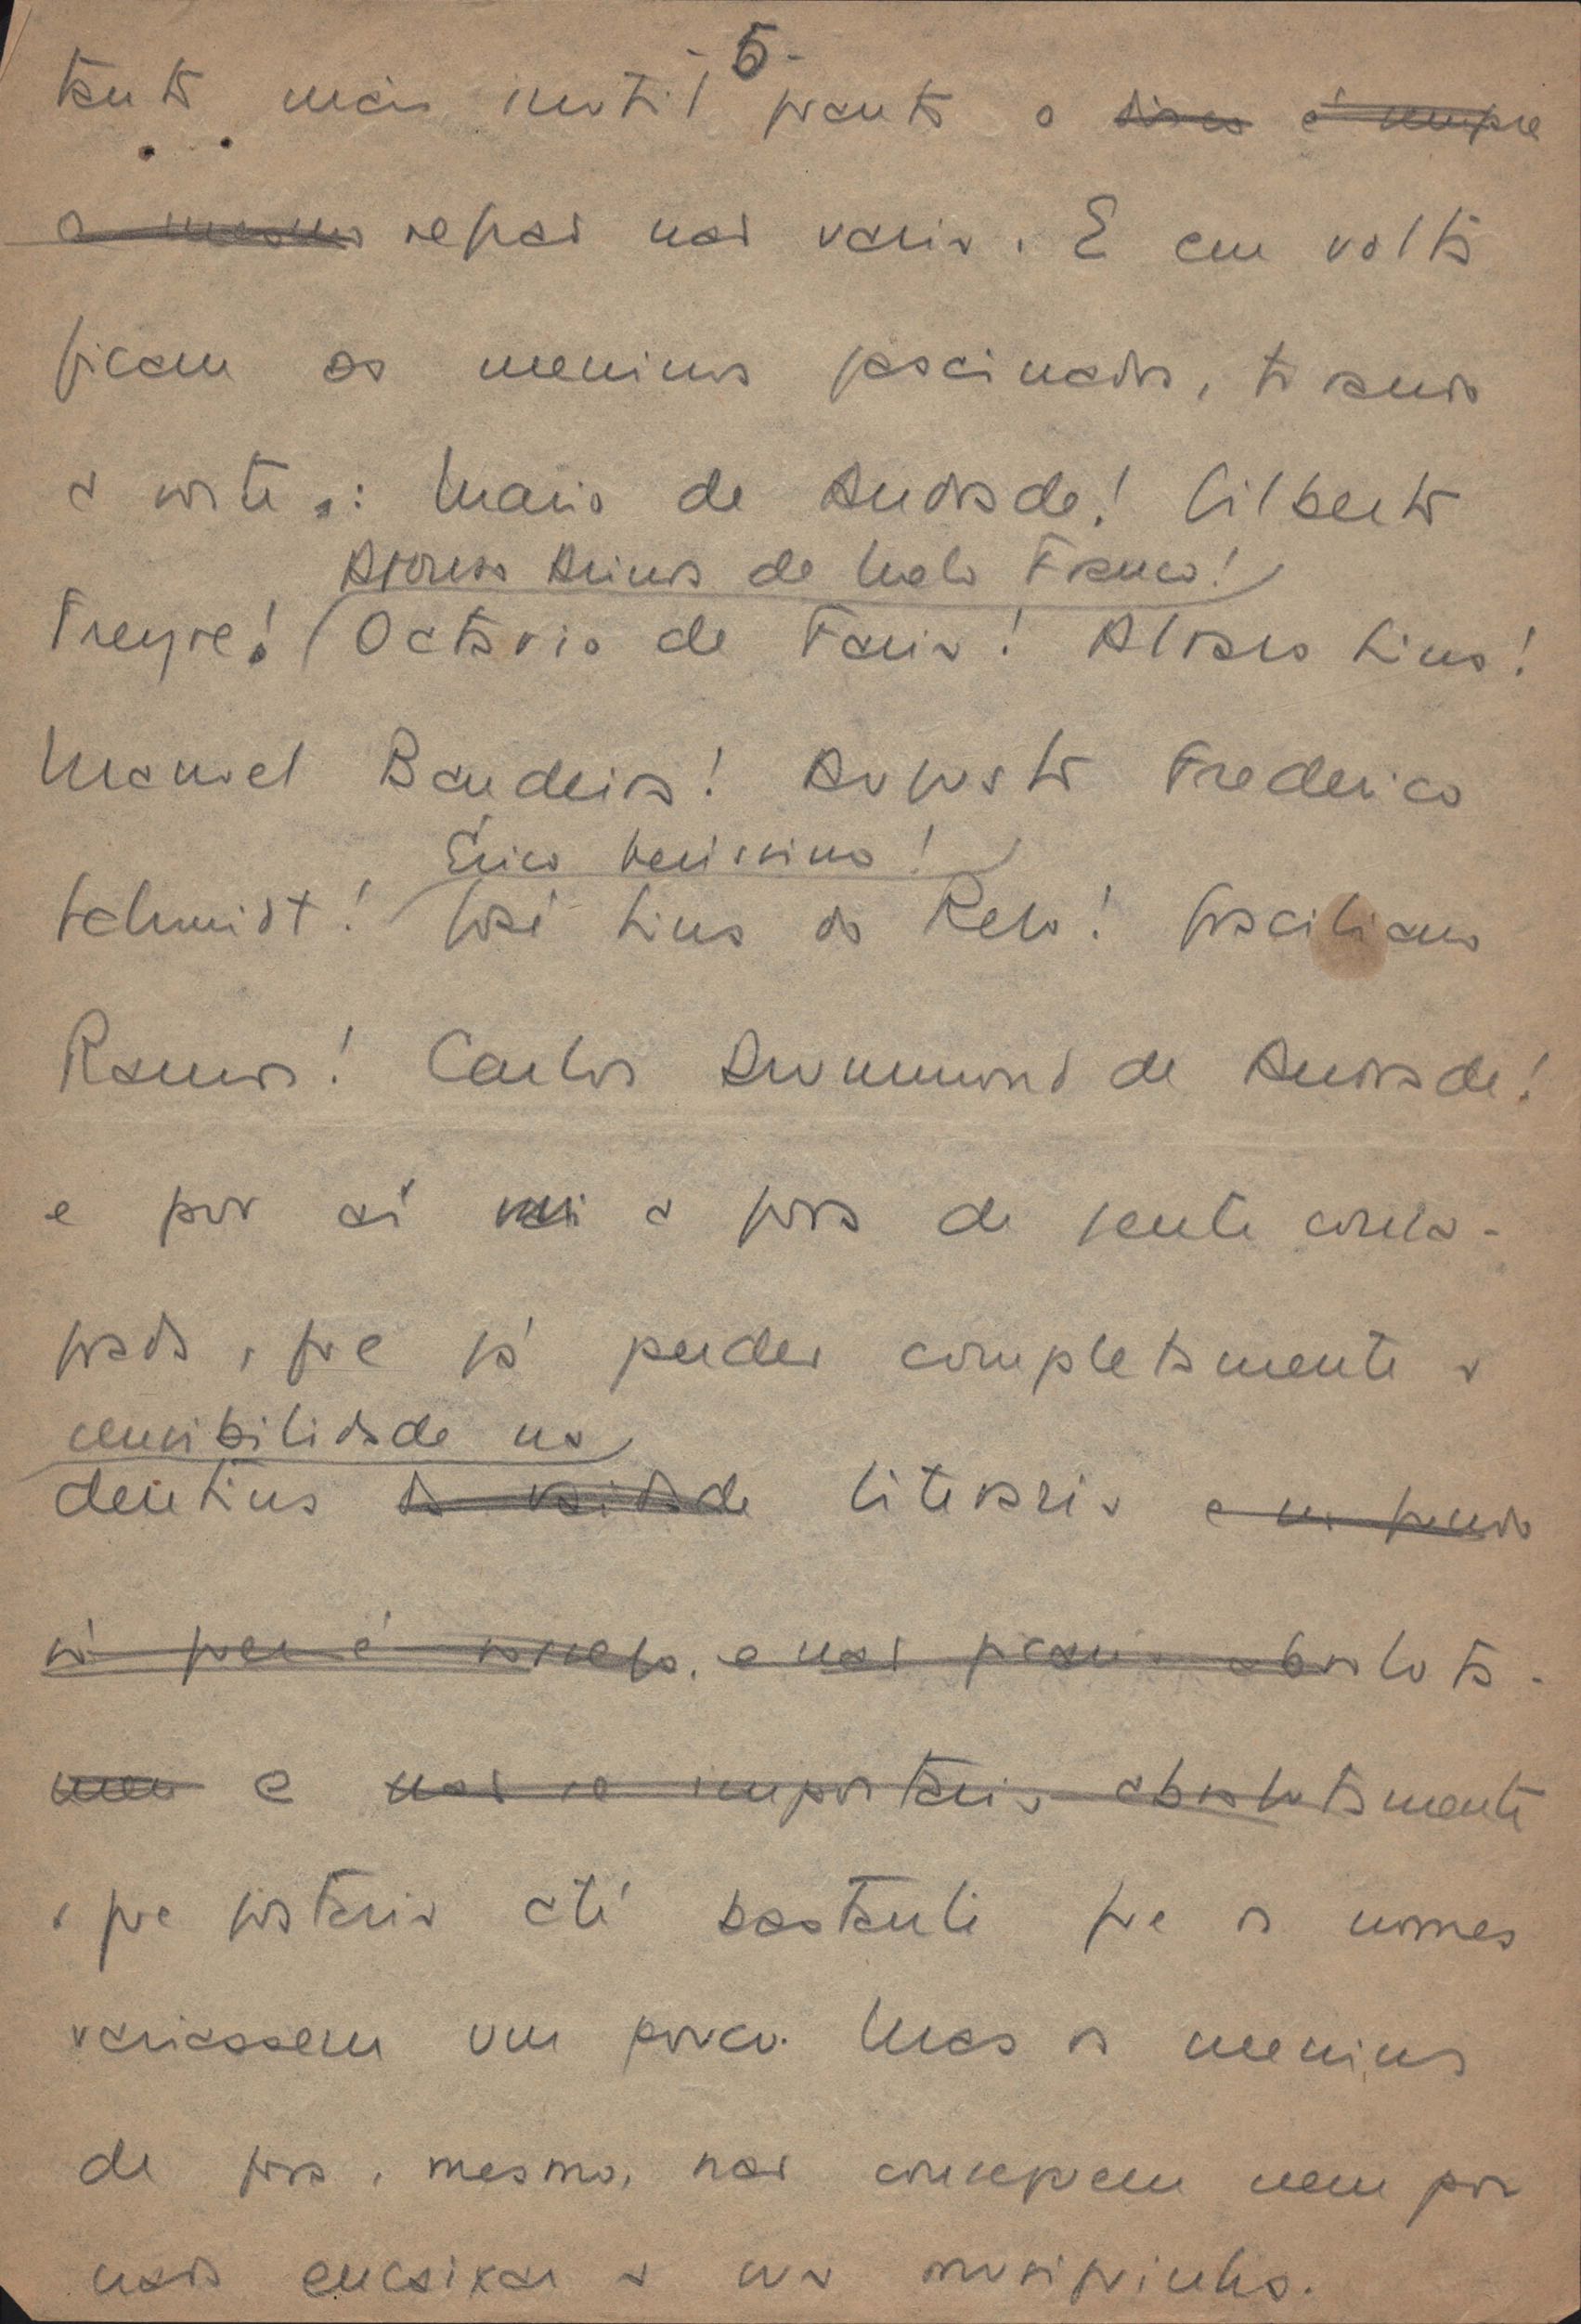 - 5 -
tanto mais inutil quanto o disco é sempre
o mesmo refrão não varia. E em volta
ficam os meninos fascinados, tocando
a corte.: Mario de Andrade! Gilberto
Afonso Arinos de Melo Franco!
Freyre! Octavio de Faria! Alvaro Lins!
Manuel Bandeira! Augusto Frederico
Érico Verissimo!
Schmidt! José Lins do Rego! Graciliano
Ramos! Carlos Drummond de Andrade!
e por aí vai a fora de gente consa-
grada, que já perdeu completamente a
sensibilidade na
dentina da vaidade literaria e no fundo
só quer é sossego. e não ficaria absoluta-
men e não se importaria absolutamente
, que gostaria até bastante que os nomes
variassem um pouco. Mas os meninos
de fora, mesmo, não conseguem nem por
nada encaixar a sua musiquinha.